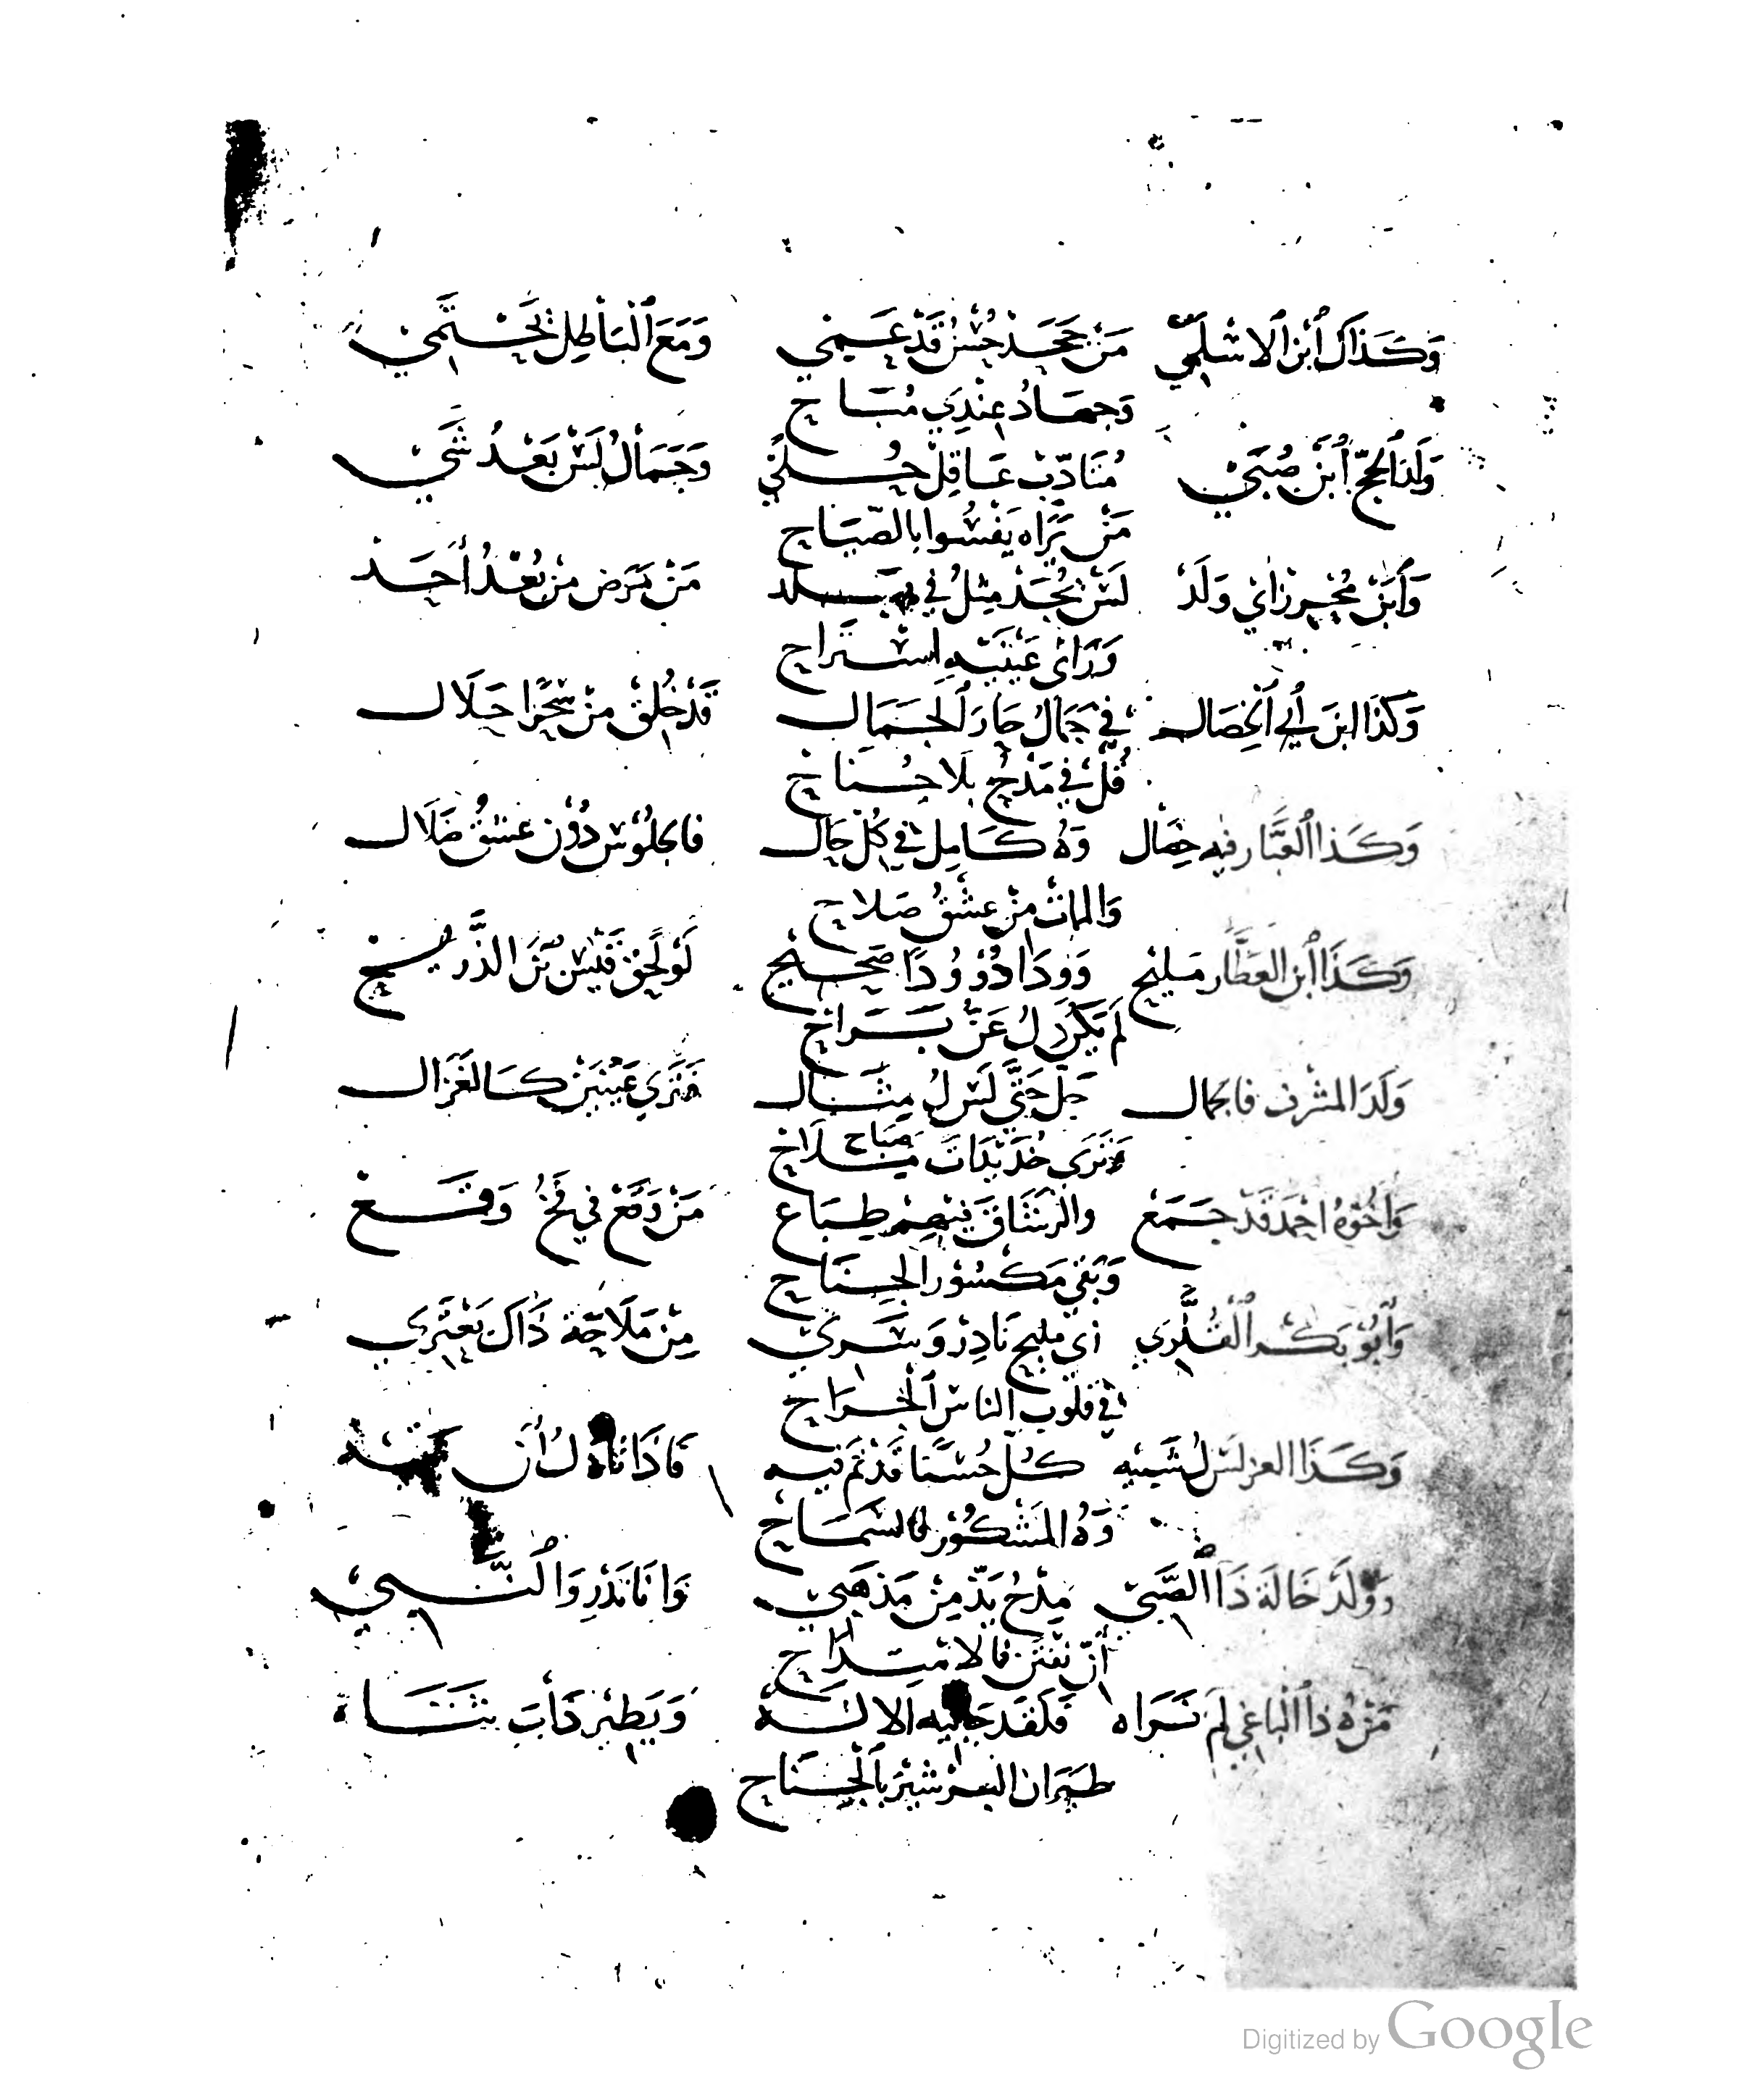 وَكَذَاكَ ٱبْن ٱلاشْلَمِي مَنْ جَحَدْ حُسْنُ قَدْ عَمِي وَمَعَ ٱلْبَاطِلْ يَحْتَمِي
وَجِهَادُ عِنْدِي مُبَاح
وَلَدْ الحجّ ٱبْن صُبَيْ مُتَادِّبْ عَاقِلْ حُلَيْ وَجَمَالُ لَسْ بَعْدُ شَيْ
مَنْ يَرَاه يَفْشُوا بالصِّيَاح
وَٱبْن مُحْرِزْ اي وَلَدْ لَسْ يُجَدْ مِثْلُ في بلد مَنْ مَرَض مِنْ بُعْدُ أحَدْ
وَرَاى عَيْنَيْهِ اسْتَرَاح
وَكَذَا ابنَ أبي ٱلْخِصَال في جَمَالُ حَارَ ٱلْجَمَال قَدْ خُلِقْ مِنْ سِحْرًا حَلَال
قُلْ في مَدْحُ بِلَا جُنَاح
وَكَذَا ٱلعَبَّار فيه خِصَال وَهُ كَامِل في كُلّ حَال فالجُلُوس دُون عشقُ ضَلَال
وَالمات مِن عشْقُ صَلاح
وَكَذَا ٱبن العَطَّار مَلِيح وَوِدَادُ وُدًا صَحِيح لَوْ لَحِقْ قَيْس بْن الذَّرِيح
لَمْ يَكُنْ لُ عَنُّ بَرَاح
وَلَدَ المشرف فالجمال جَلّ حَتَّى لَسْ لُ مِثَال فَتَرَى عَيْنَيْن كَالغَزَال
وَتَرَى خَدَّيْدَات مِلَاح صباح
وَاخُوهُ احْمَدْ قَدْ جَمَعْ والرَّشَاقَ فِيهِمْ طِبَاع مَنْ دَفَعْ في فَخُّ وَقَعْ
وَبَقِي مَكْسُورْ الجَنَاح
وَأبُو بَكْر ٱلْقُلَّرِي زي مليح نَادِرْ وَسَرِي مِنْ مَلَاحَةْ ذَاكَ يَعْتَرِي
في قلُوبِ الناس ٱلْجِرَاح
وَكَذَا العز لَسْ لُ شَبِيه كُلّ حُسْنًا قَدْ تَمّ فيه فَاذَا تاه لُ أن
وَهُ المَشْكُورْ فالسَّمَاح
وَوَلَدْ خَالَةْ ذَا ٱلصَّبِيْ مِدْحُ بَدّ مِنْ مَذهَبِي وَانَا نَدْرِ وَٱلنَّبِيْ
أنّ نفتن فالامْتِدَاح
مَنْ هُ ذا ٱلْباغي لَمْ نَرَاه فَلَقَد الالَه وَيَطِيرْ دَأبَ
طَيَرَان بِٱلْجَنَاح
Digitized by Google